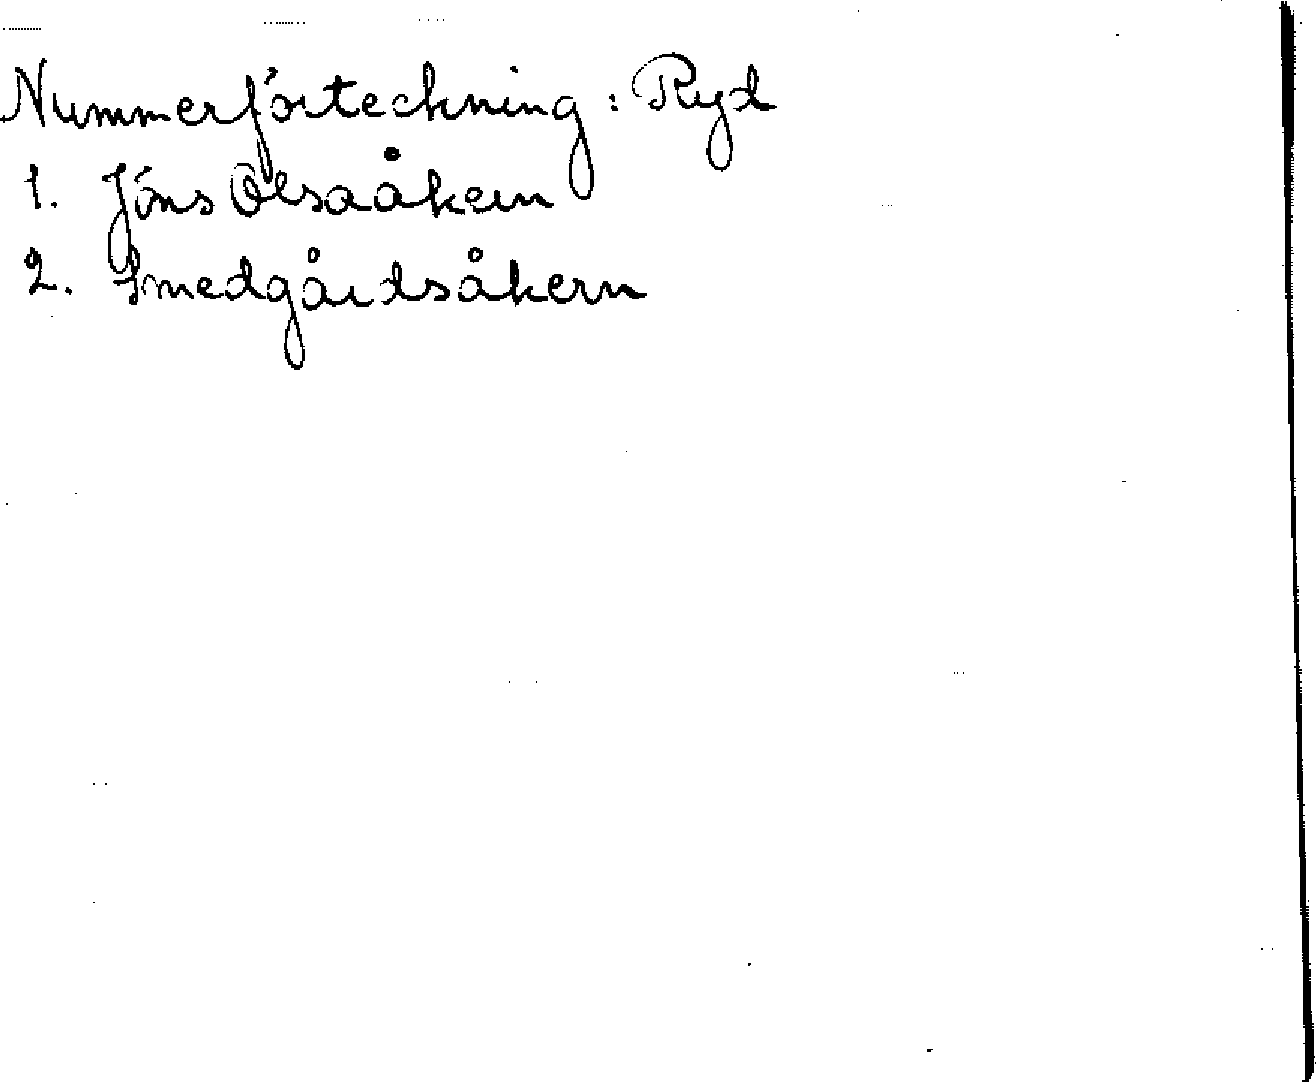 Nummerförteckning: Ryd
1. Jöns Olsaåkern
2. Smedgårdsåkern